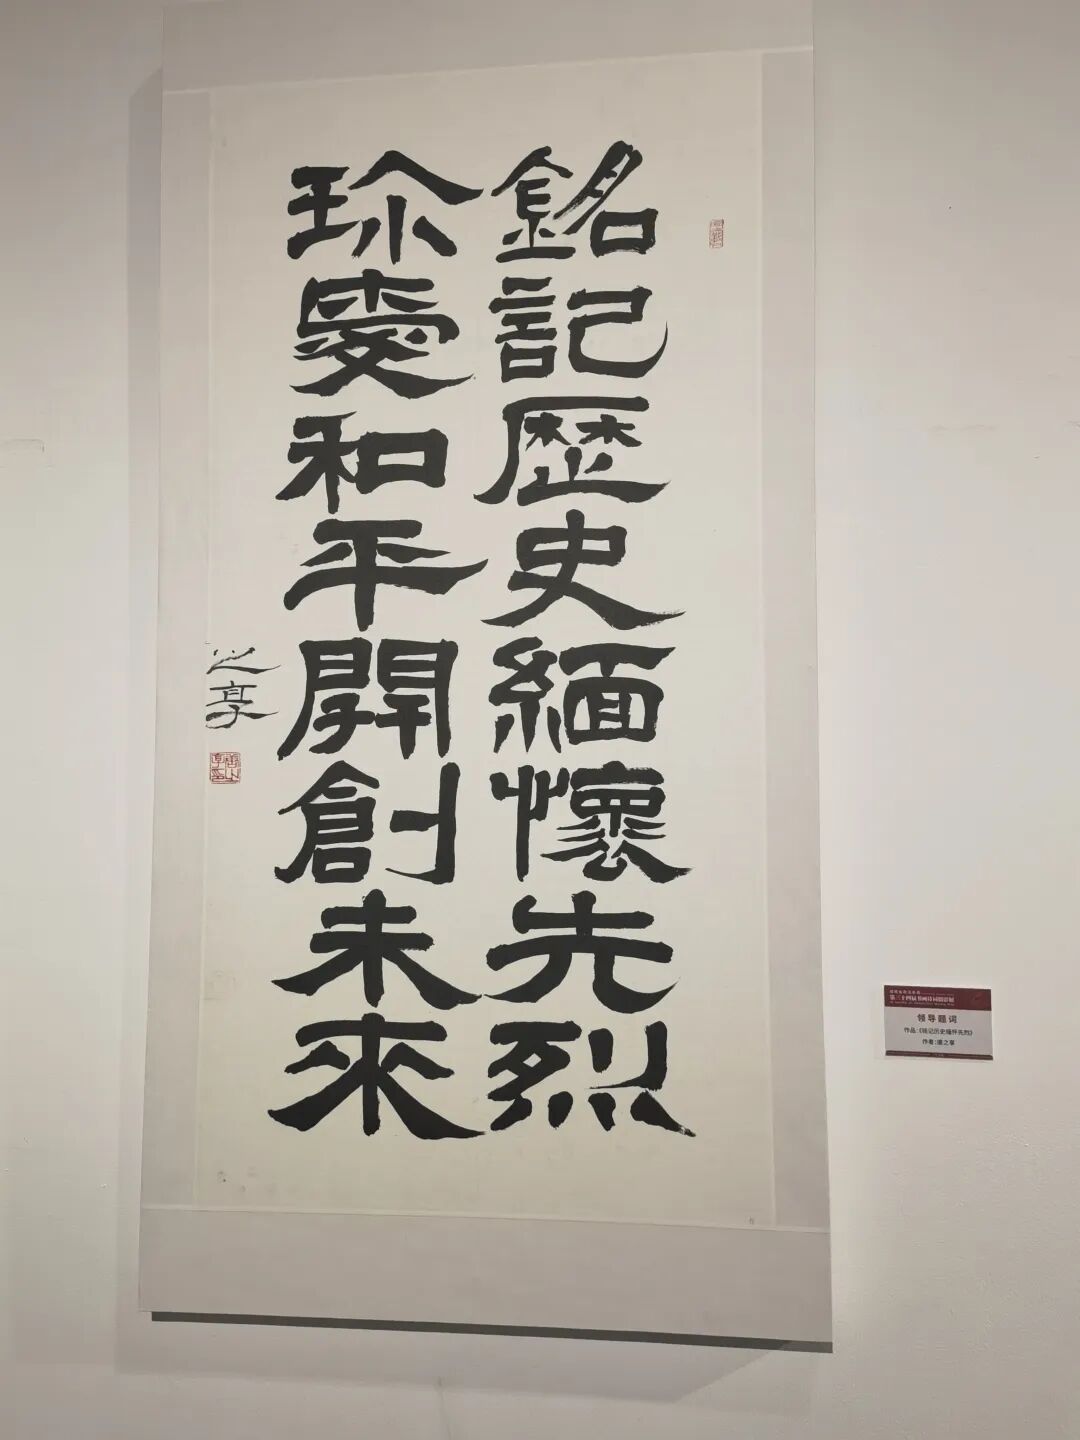 銘記歷史緬懷先烈
珎愛和平開創未來
之享
第三十四届书画诗词摄影展
领导题词
作品：《铭记历史缅怀先烈》
作者：盛之享